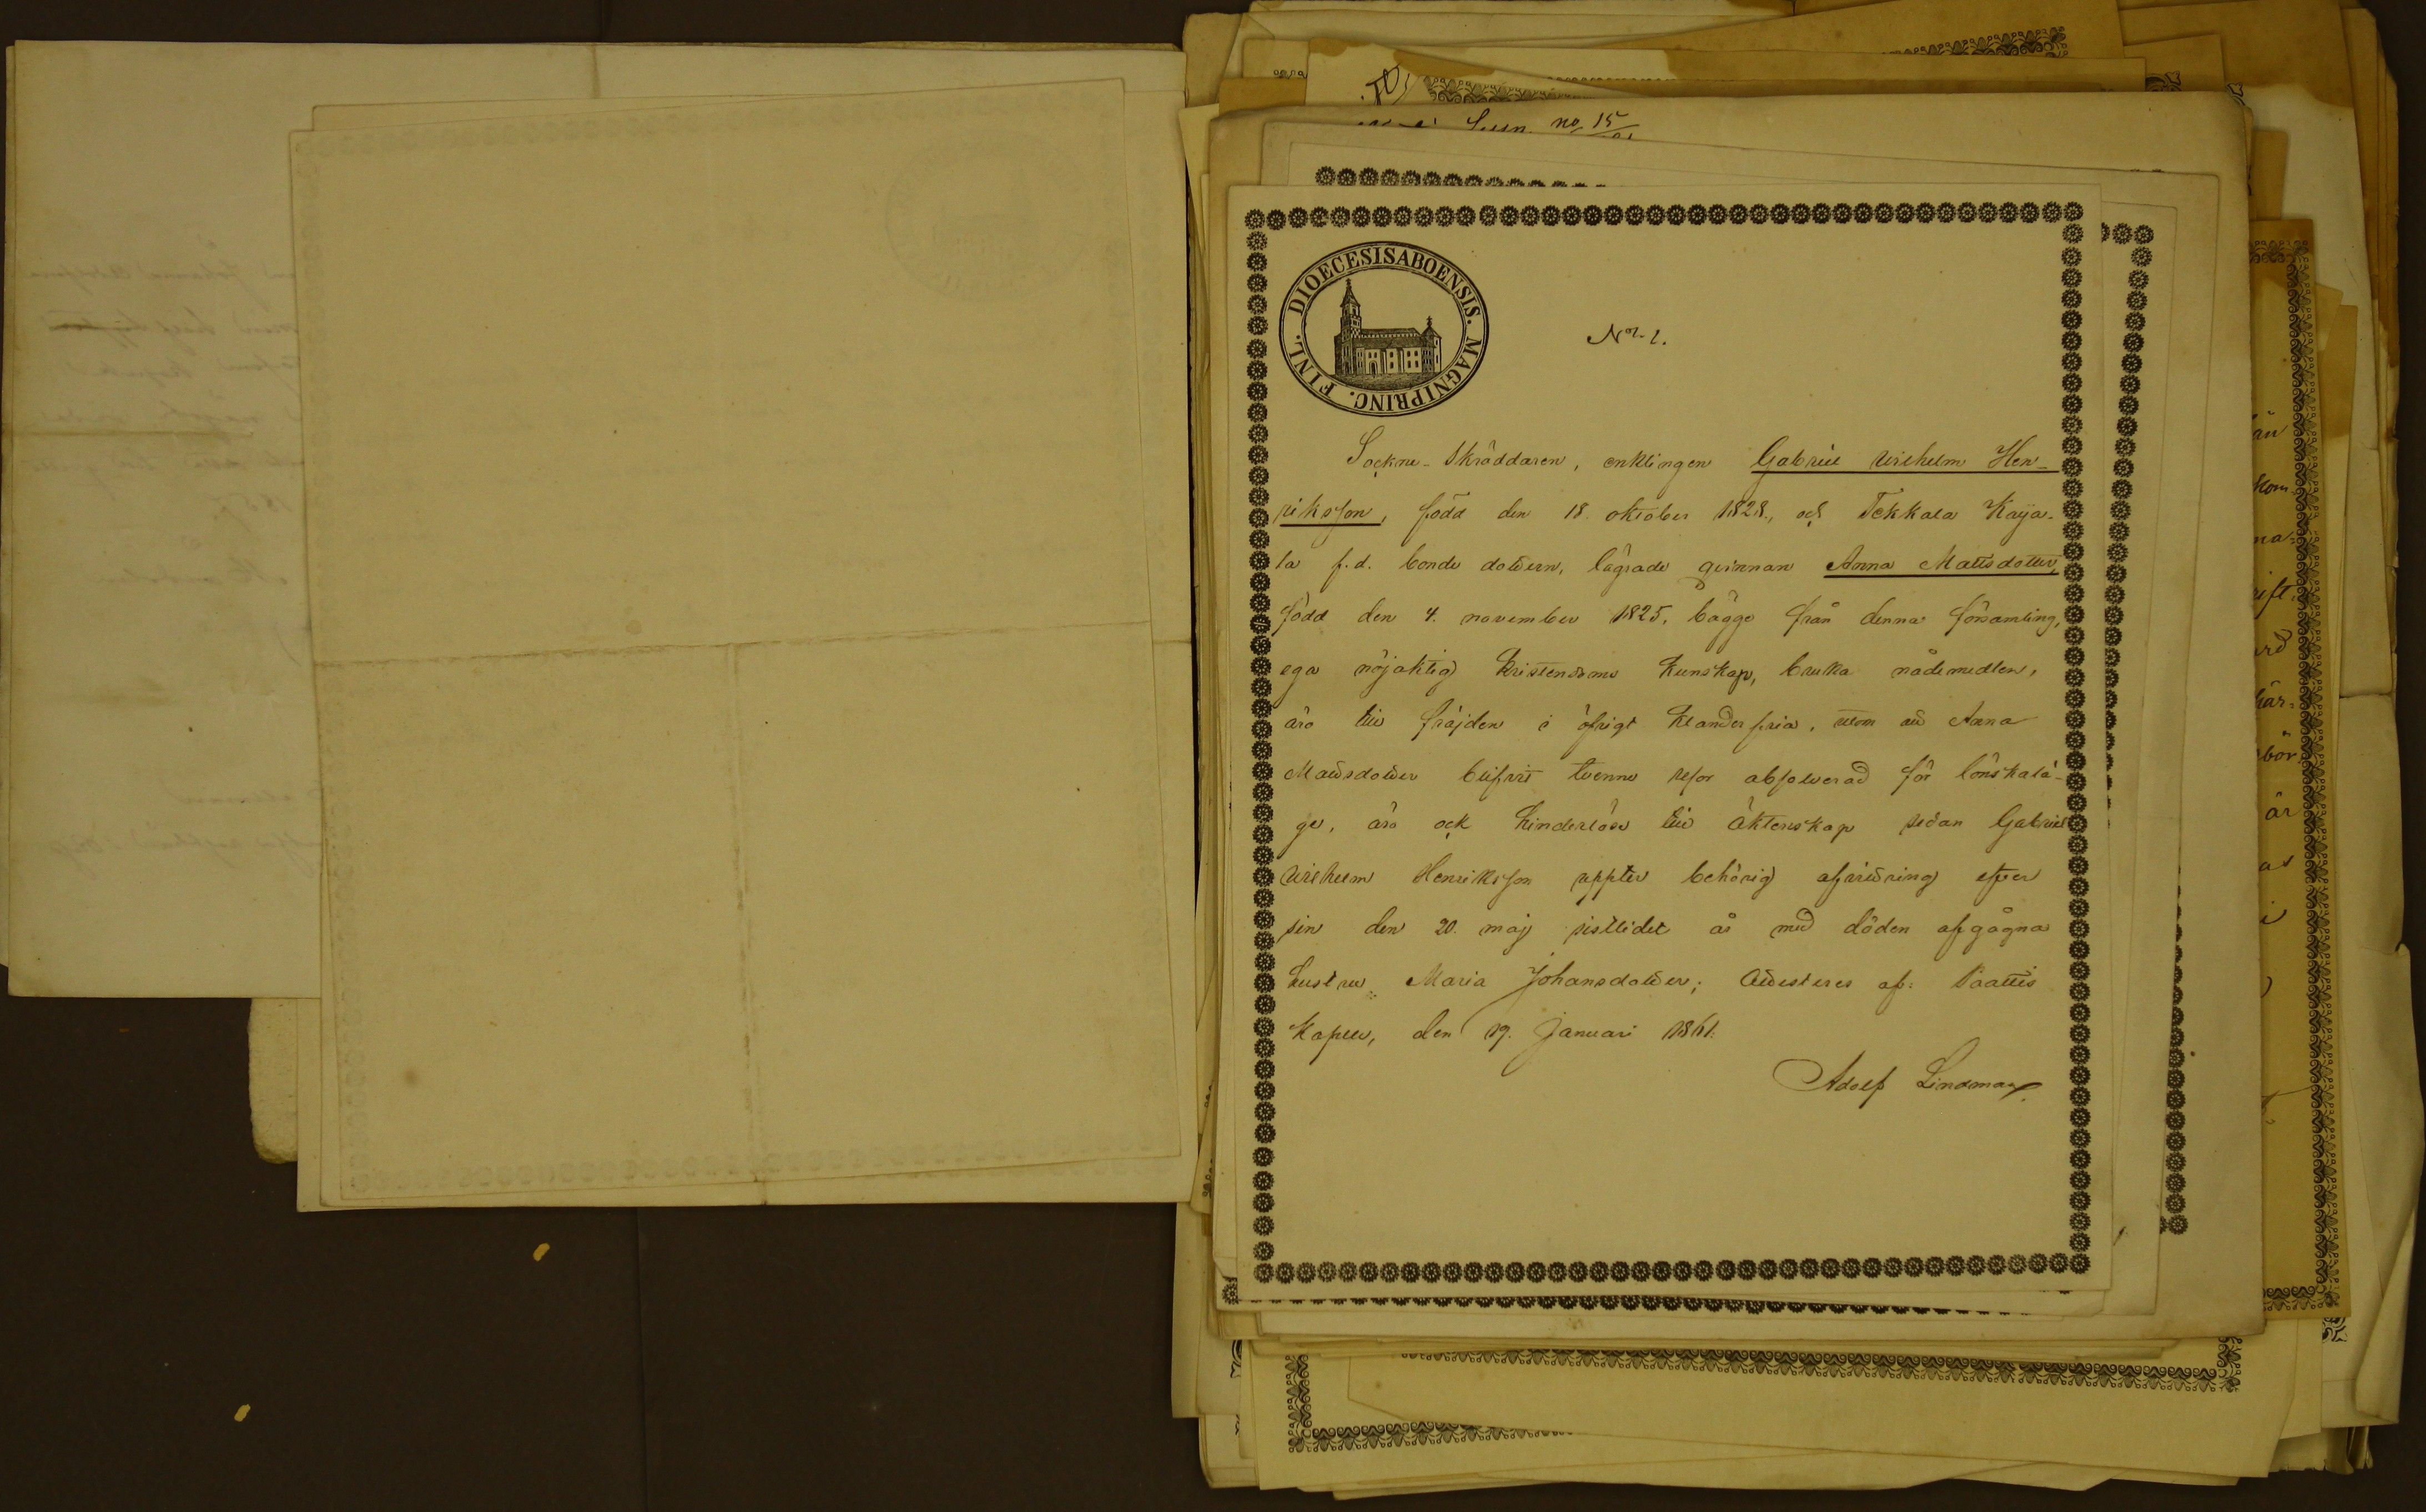 Sun. no 15
DIOECESIS ABOENSIS. MAGNI PRINC. FINL.
No. 1.
Sockne-Skräddaren, enklingen Gabriel Wilhelm Hen-
riksson, född den 18. oktober 1828., och Tekkala Kaija-
la f.d. bonde dottern, lägrade qvinnan Anna Mattsdotter,
född den 4. november 1825, bägge från denna församling,
ega nöjaktig kristendoms kunskap, bruka nådemedlen,
äro till fräjden i öfrigt klanderfria, utom att Anna
Mattsdotter blifvit tvenne resor absolverad för lönskalä-
ge, äro ock hinderlöse till äktenskap sedan Gabriel
Wilhelm Henriksson upptet behörig afvittring efter
sin den 20. maj sistlidet år med döden afgågna
hustru Maria Johansdotter; attesteres af: Paattis
Kapell, den 19. Januari 1861.
Adolf Lindman.
än
kom
na-
ift
rd
här-
bör
är
as
i